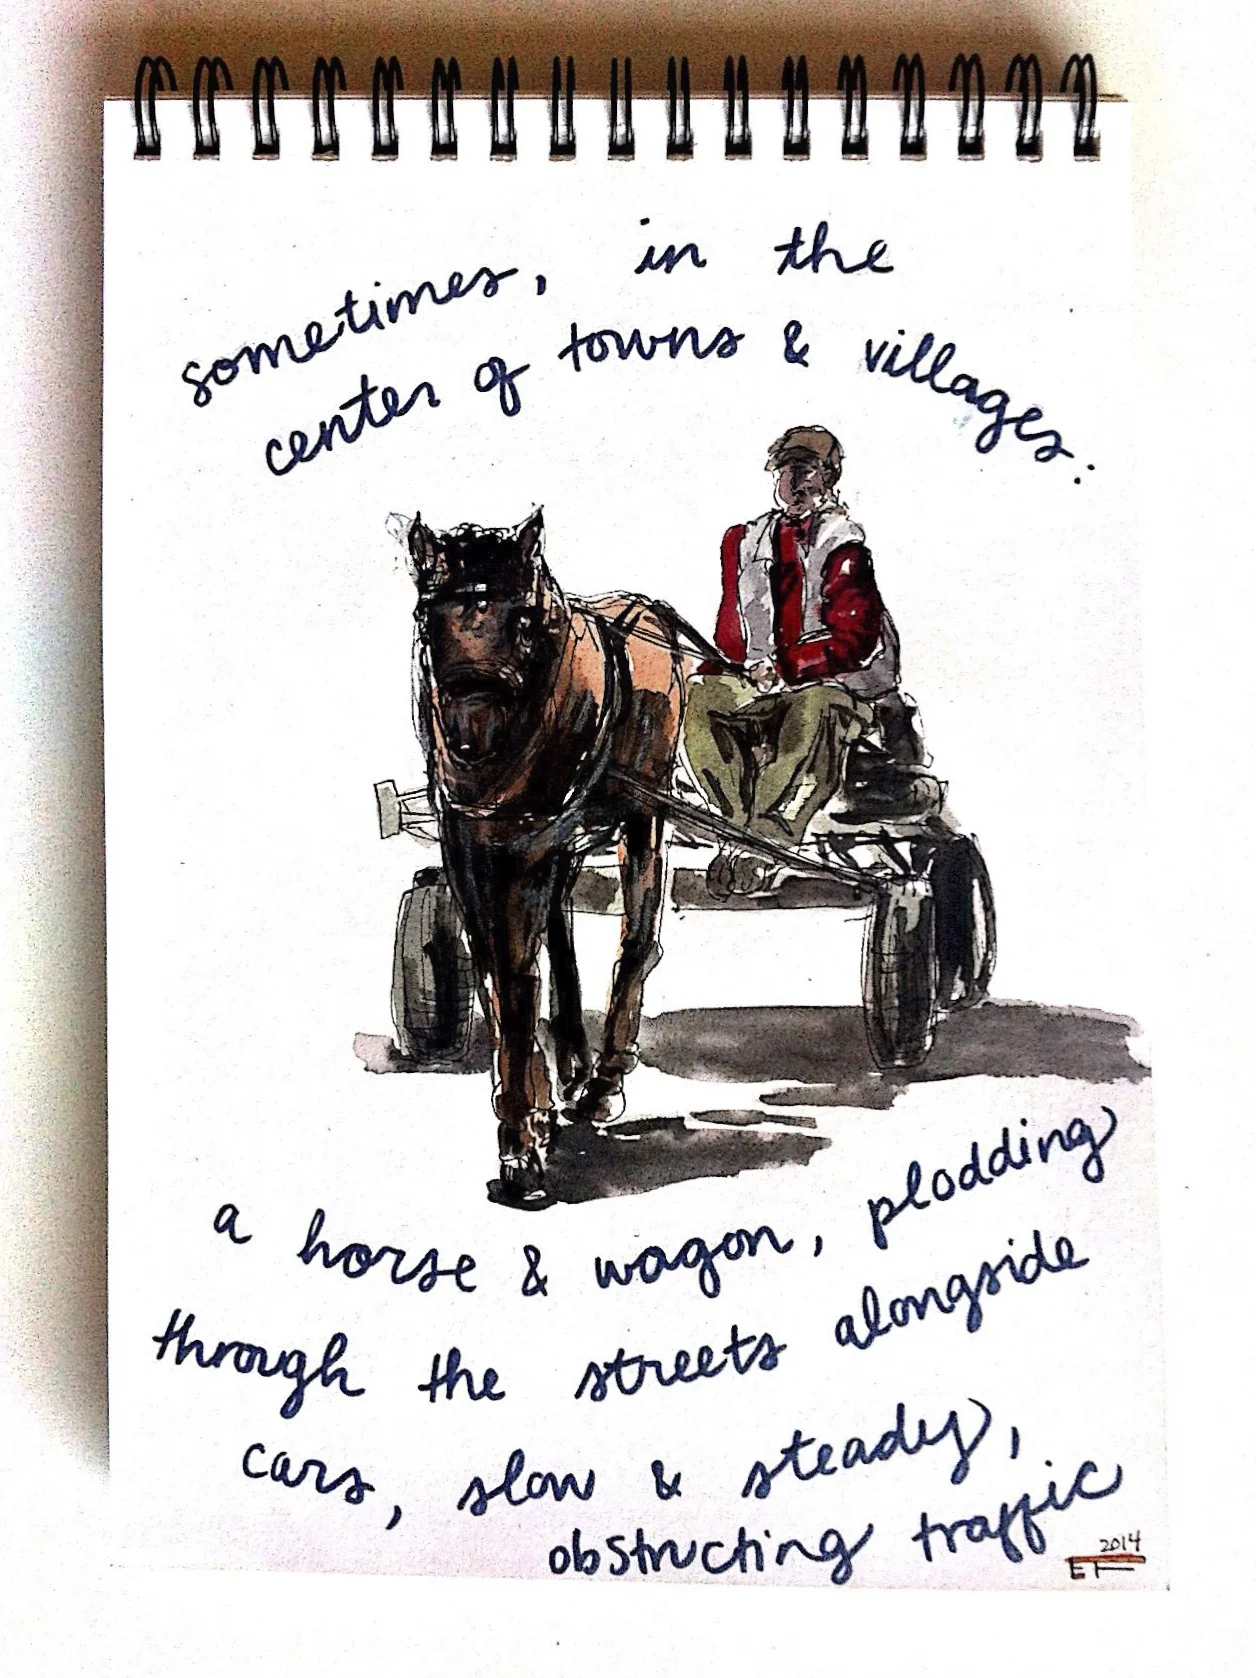 sometimes, in the
center of towns & villages.
a horse & wagon, plodding
through the streets alongside
cars, slow & steady,
obstructing traffic
2014
EF